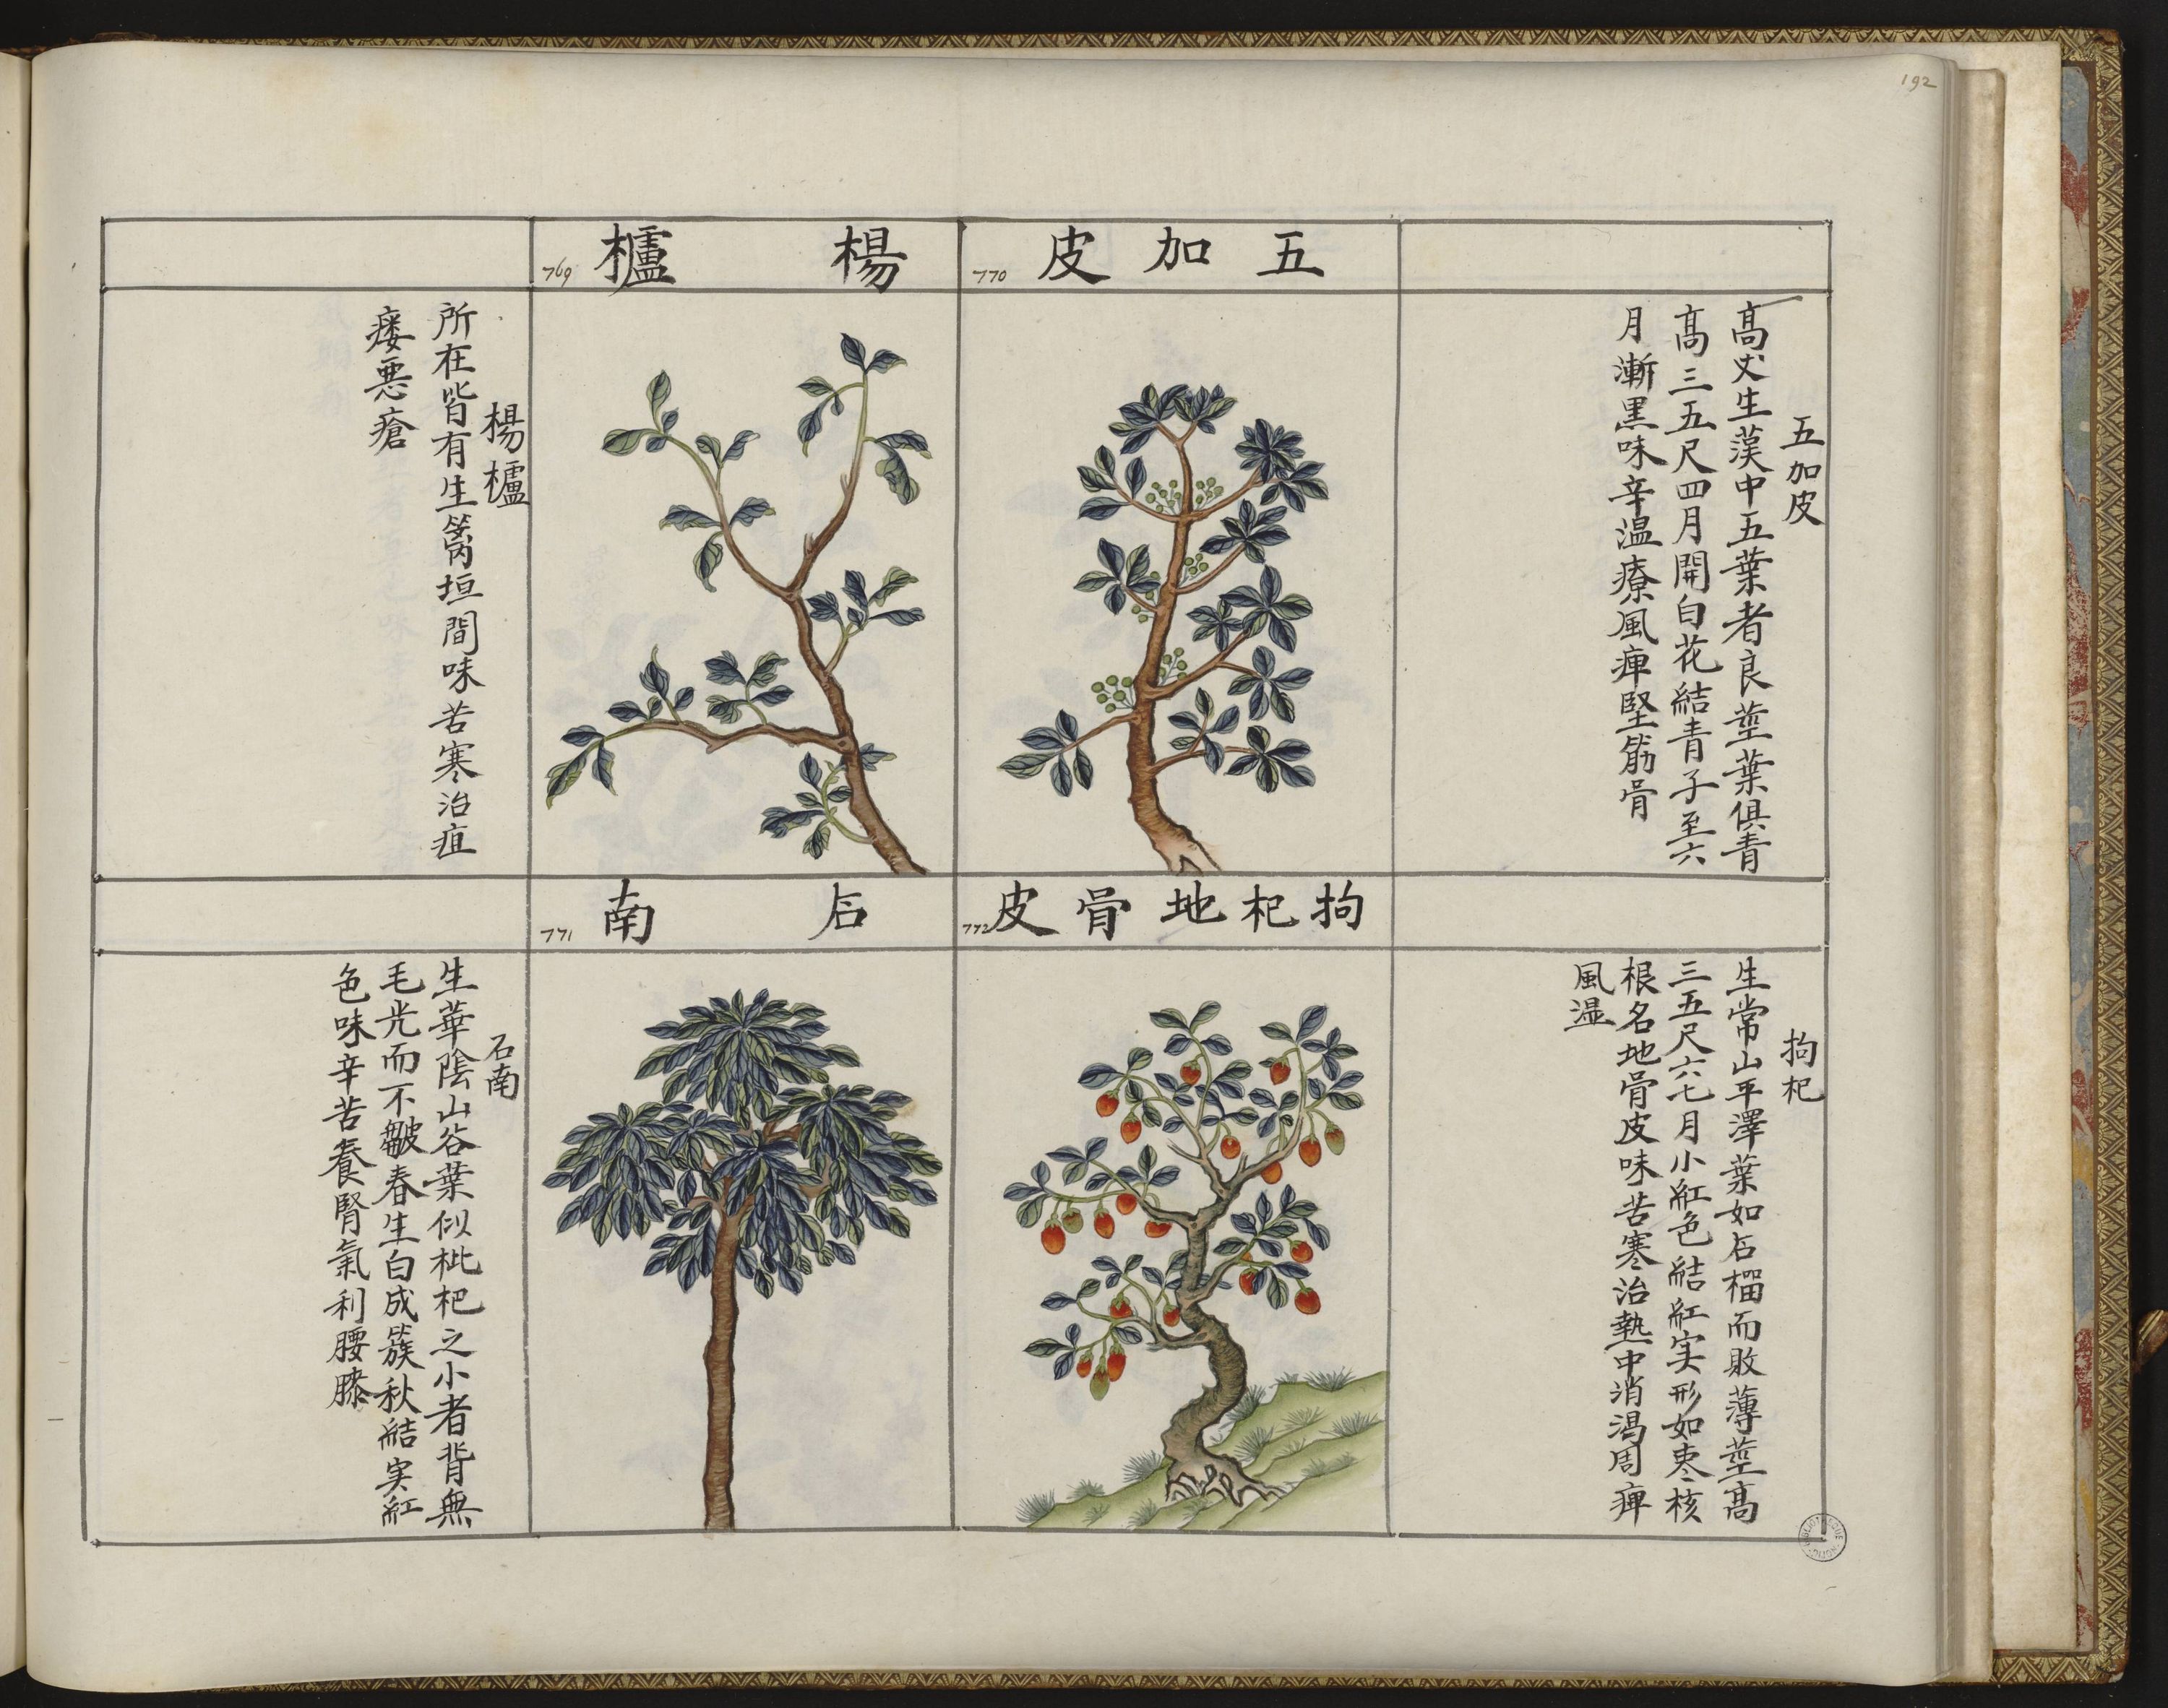 192
五加皮
770
五加皮
高丈生漢中五葉者良莖葉俱青
高三五尺四月開白花結青子至六
月漸黑味辛温療風痺堅筋骨
楊櫨
769
楊櫨
所在皆有生篱垣間味苦寒治疽
瘘悪瘡
拘杞地骨皮
772
拘杞
生常山平澤葉如石榴而敗薄莖高
三五尺六七月小紅色結紅実形如枣核
根名地骨皮味苦寒治熱中消渴周痺
風湿
石南
771
石南
生華陰山谷葉似枇杷之小者背無
毛光而不皺春生白成簇秋結実紅
色味辛苦養腎氣利腰膝